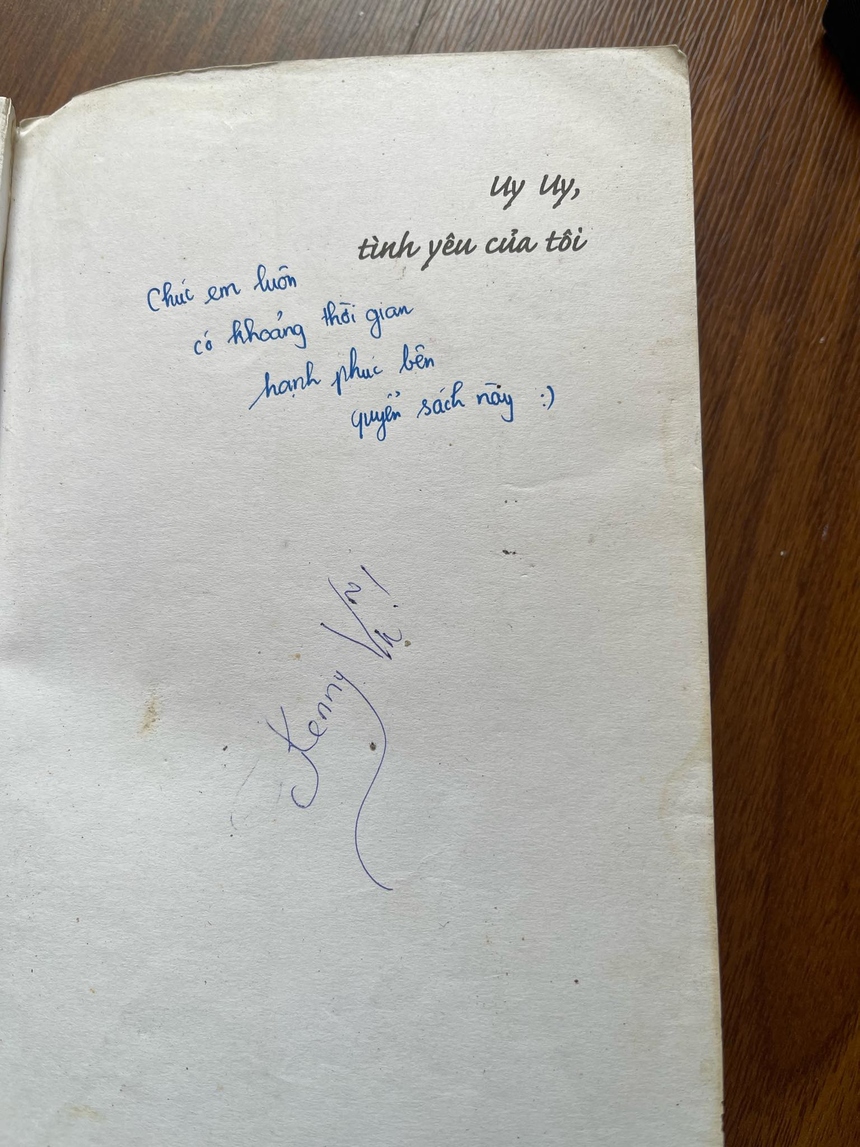 Uy Uy,
tình yêu của tôi
Chúc em luôn
có khoảng thời gian
hạnh phúc bên
quyển sách này :)
Kenny